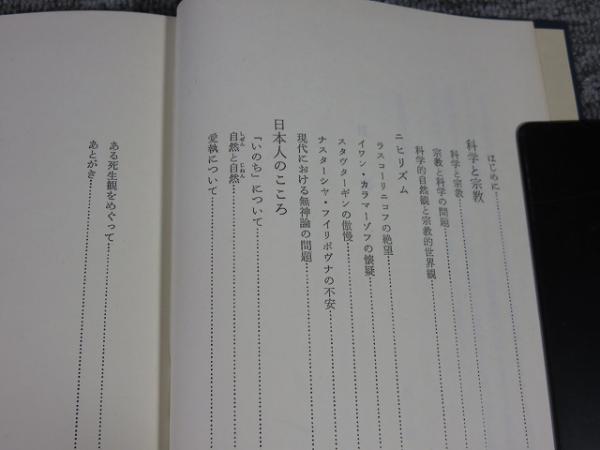 はじめに
科学と宗教
科学と宗教
宗教と科学の問題
科学的自然観と宗教的世界観
ニヒリズム
ラスコーリニコフの絶望
イワン・カラマーゾフの懐疑
スタヴターギンの傲慢
ナスターシャ・フイリポヴナの不安
現代における無神論の問題
日本人のこころ
「いのち」について
自然と自然
しぜん じねん
愛執について
ある死生観をめぐって
あとがき